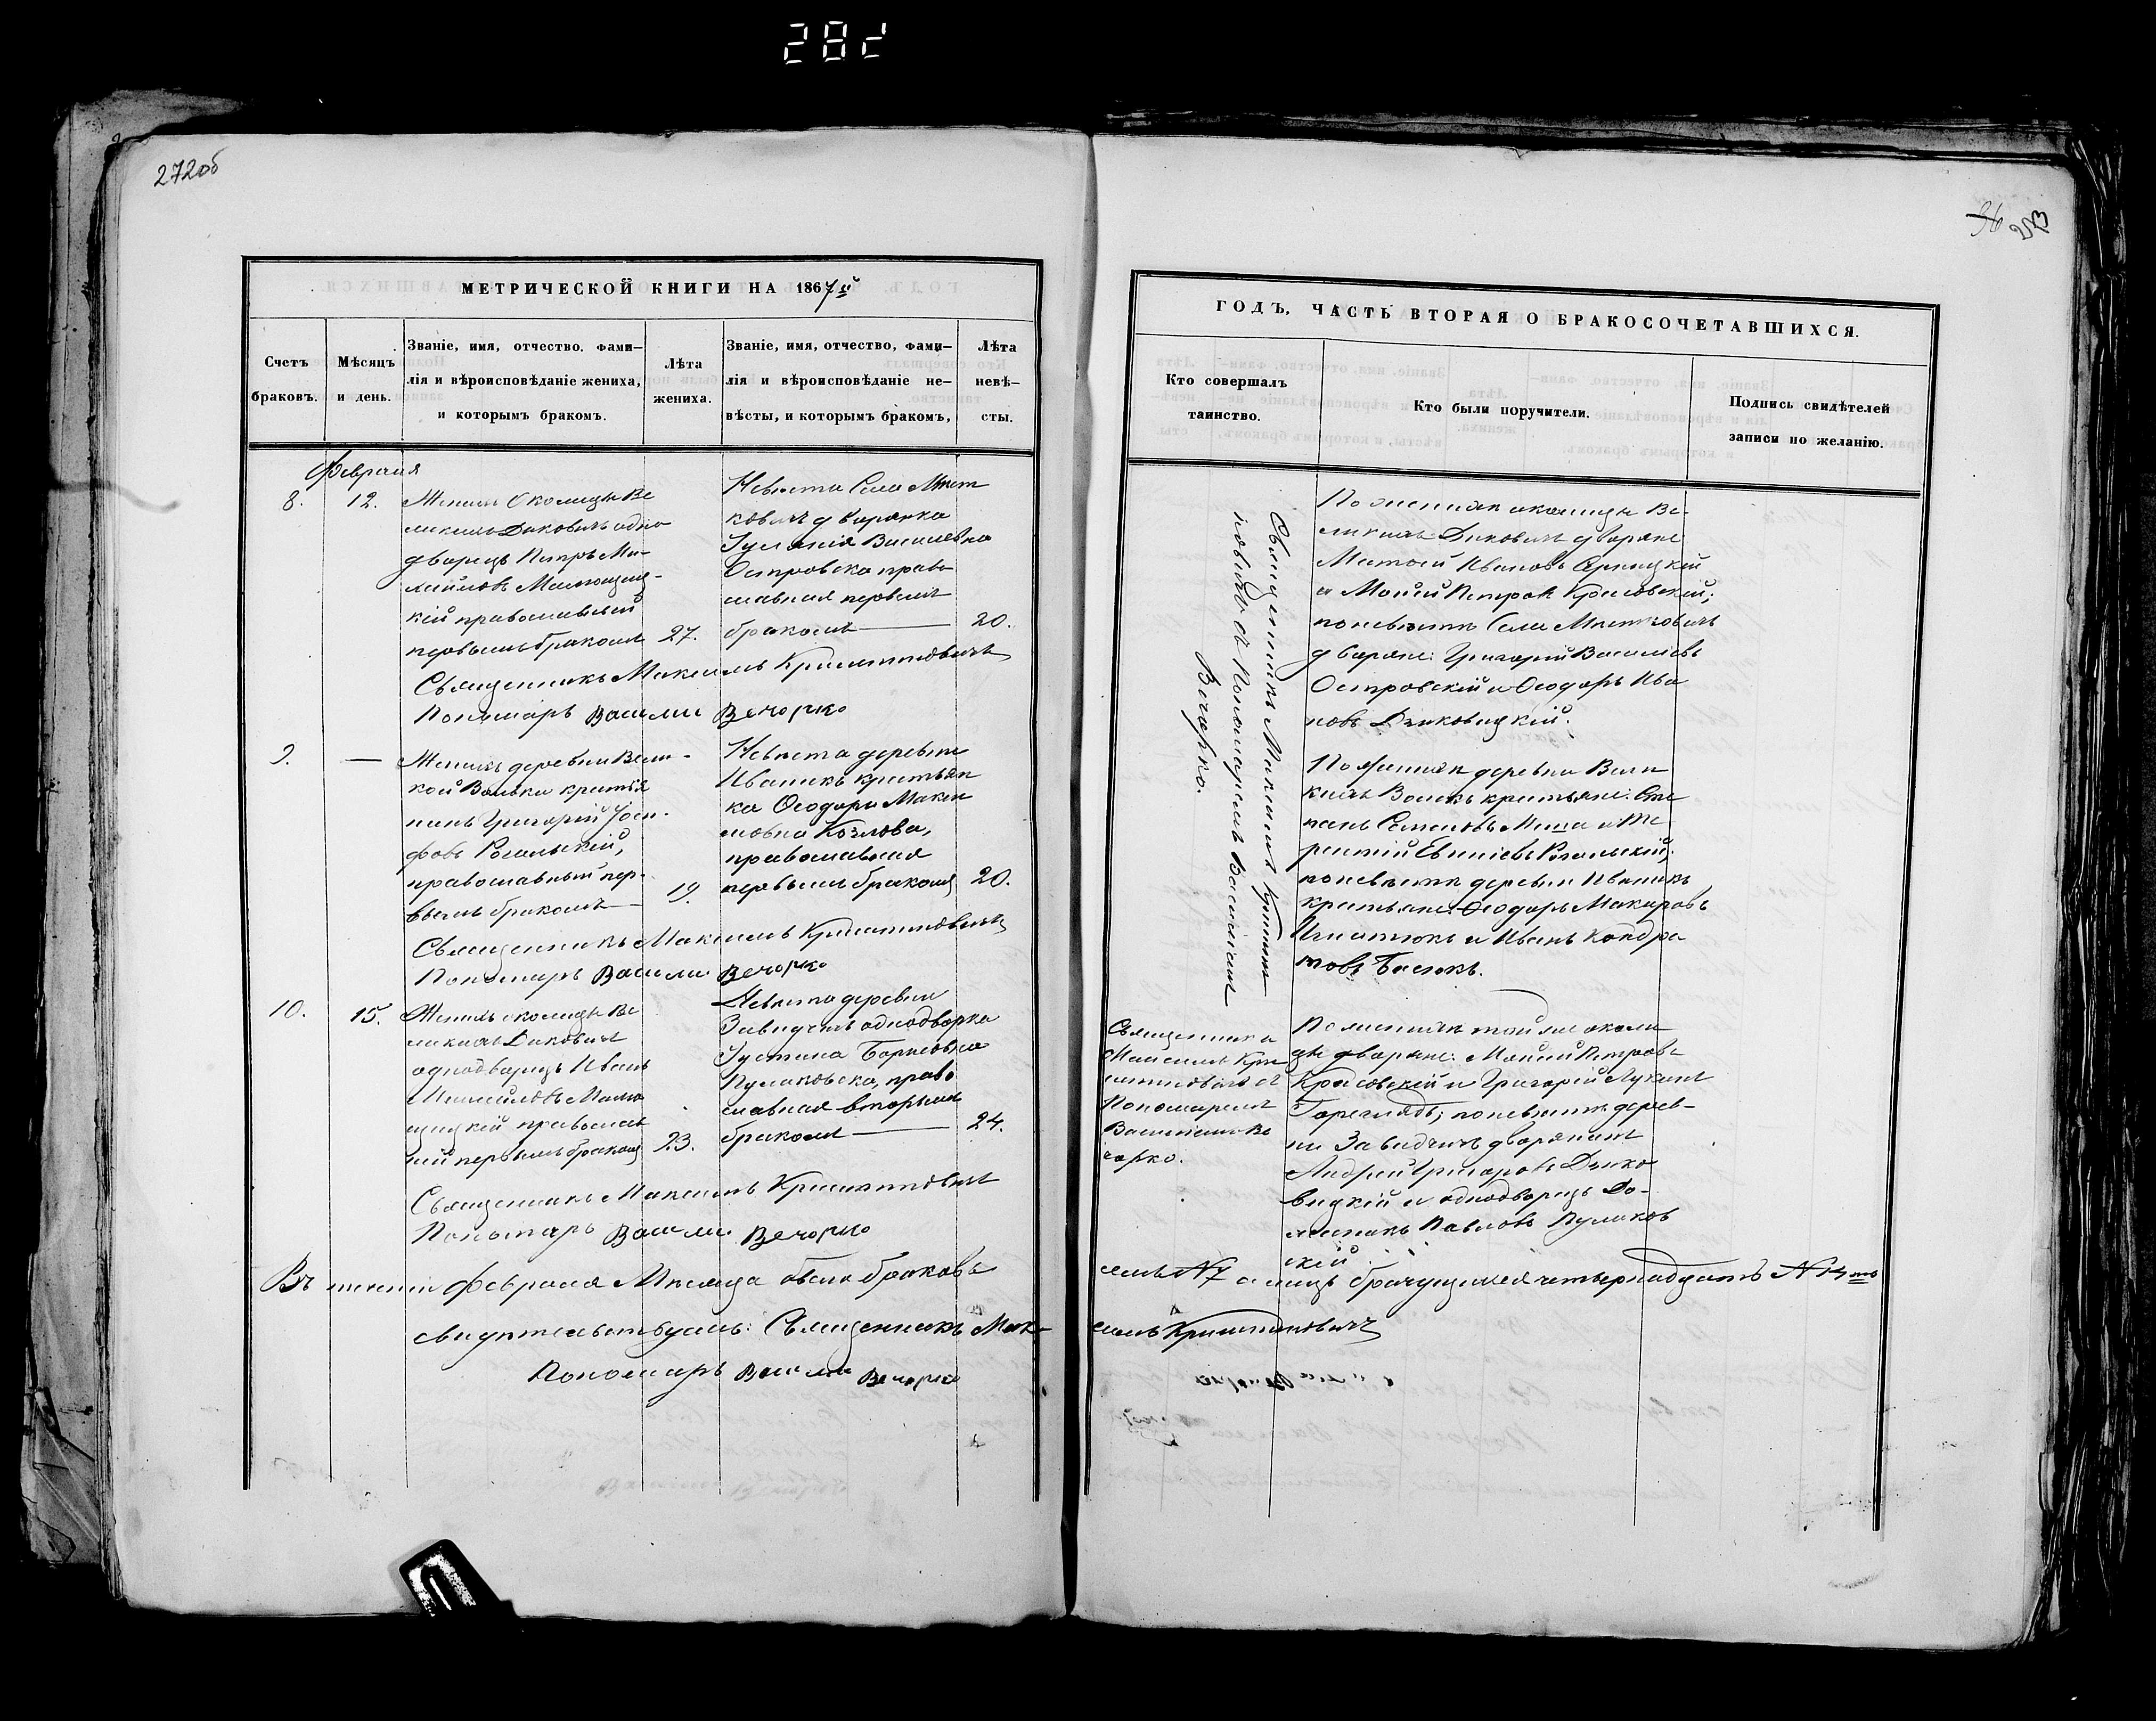 282
272об
МЕТРИЧЕСКОЙ КНИГИ НА 1867й
Счетъ браковъ.
Мѣсяцъ и день.
Званіе, имя, отчество. фами-
лія и вѣроисповѣданіе жениха,
и которымъ бракомъ.
Лѣта
жениха.
Званіе, имя, отчество, фами-
лія и вѣроисповѣданіе не-
вѣсты, и которымъ бракомъ,
Лѣта
невѣ-
сты.
Февраля
8. 12.
Женихъ Околицы Ве
ликихъ Диковичъ одно
дворецъ Петръ Ми-
хайловъ
кій православный
первымъ бракомъ 27.
Невѣста Села Мест
ковичъ дворянка
Іуліанія Васильевна
Островска право
славная первымъ
бракомъ 20.
Священникъ Максимъ
Пономарь Васили Вечорко
9. —
Женихъ деревни Вели-
кой Вольки крестья
нинъ Григорій Іоси-
фовъ Рогальскій,
православный пер-
вымъ бракомъ 19.
Невѣста деревни
Иваникъ крестьян
ка Ѳеодора Макси
мовна Козлова,
православная
первымъ бракомъ 20.
Священникъ Максимъ
Пономарь Васили Вечорко
10. 15.
Женихъ околицы Ве
ликихъ Диковичъ
однодворецъ Иванъ
Михайловъ
православ
ный первымъ бракомъ 23.
Невѣста деревни
Завидчичъ однодворка
Іустина Борисовна
Пулаковска, право
славная вторымъ
бракомъ 24.
Священникъ Максимъ
Пономарь Васили Вечорко
Въ теченіи Февраля Мѣсяца было браковъ
свидѣтельствуемъ: Священникъ Мак-
Пономарь Васили Вечорко
36 273
ГОДЪ. ЧАСТЬ ВТОРАЯ О БРАКОСОЧЕТАВШИХСЯ.
Кто совершалъ
таинство.
Кто были поручители.
Подпись свидѣтелей
записи по желанію.
Священникъ Максимъ
съ Пономаремъ Василіемъ
Вечорко.
По женихѣ околицы Ве-
ликихъ Диковичъ дворяне
Матѳей Ивановъ
и Мойсій Петровъ Красовскій;
по невѣстѣ Села Местковичъ
дворяне: Григорій Васильевъ
Островскій и Ѳеодоръ Ива
новъ Дзиковицкій.
По женихѣ деревни Вели
крестьяне: Сте
панъ Семеновъ и Те
рентій Рогальскій;
по невѣстѣ деревни Иваникъ
крестьяне: Ѳеодоръ Макаровъ
Игнатюкъ и Иванъ Кондра
товъ
Священникъ
Максимъ
съ
Пономаремъ
Василіемъ Ве
чорко.
По женихѣ той же околи
цы дворяне: Мойсій Петровъ
Красовскій и Григорій Лукинъ
Гореглядъ; по невѣстѣ дерев-
ни Завидчичъ дворянинъ
Андрей Григоровъ Дзико
вицкій и однодворецъ До-
миникъ Павловъ Пулаков
скій
семь N7 а лицъ брачущихся четырнадцать N 14ть
симъ